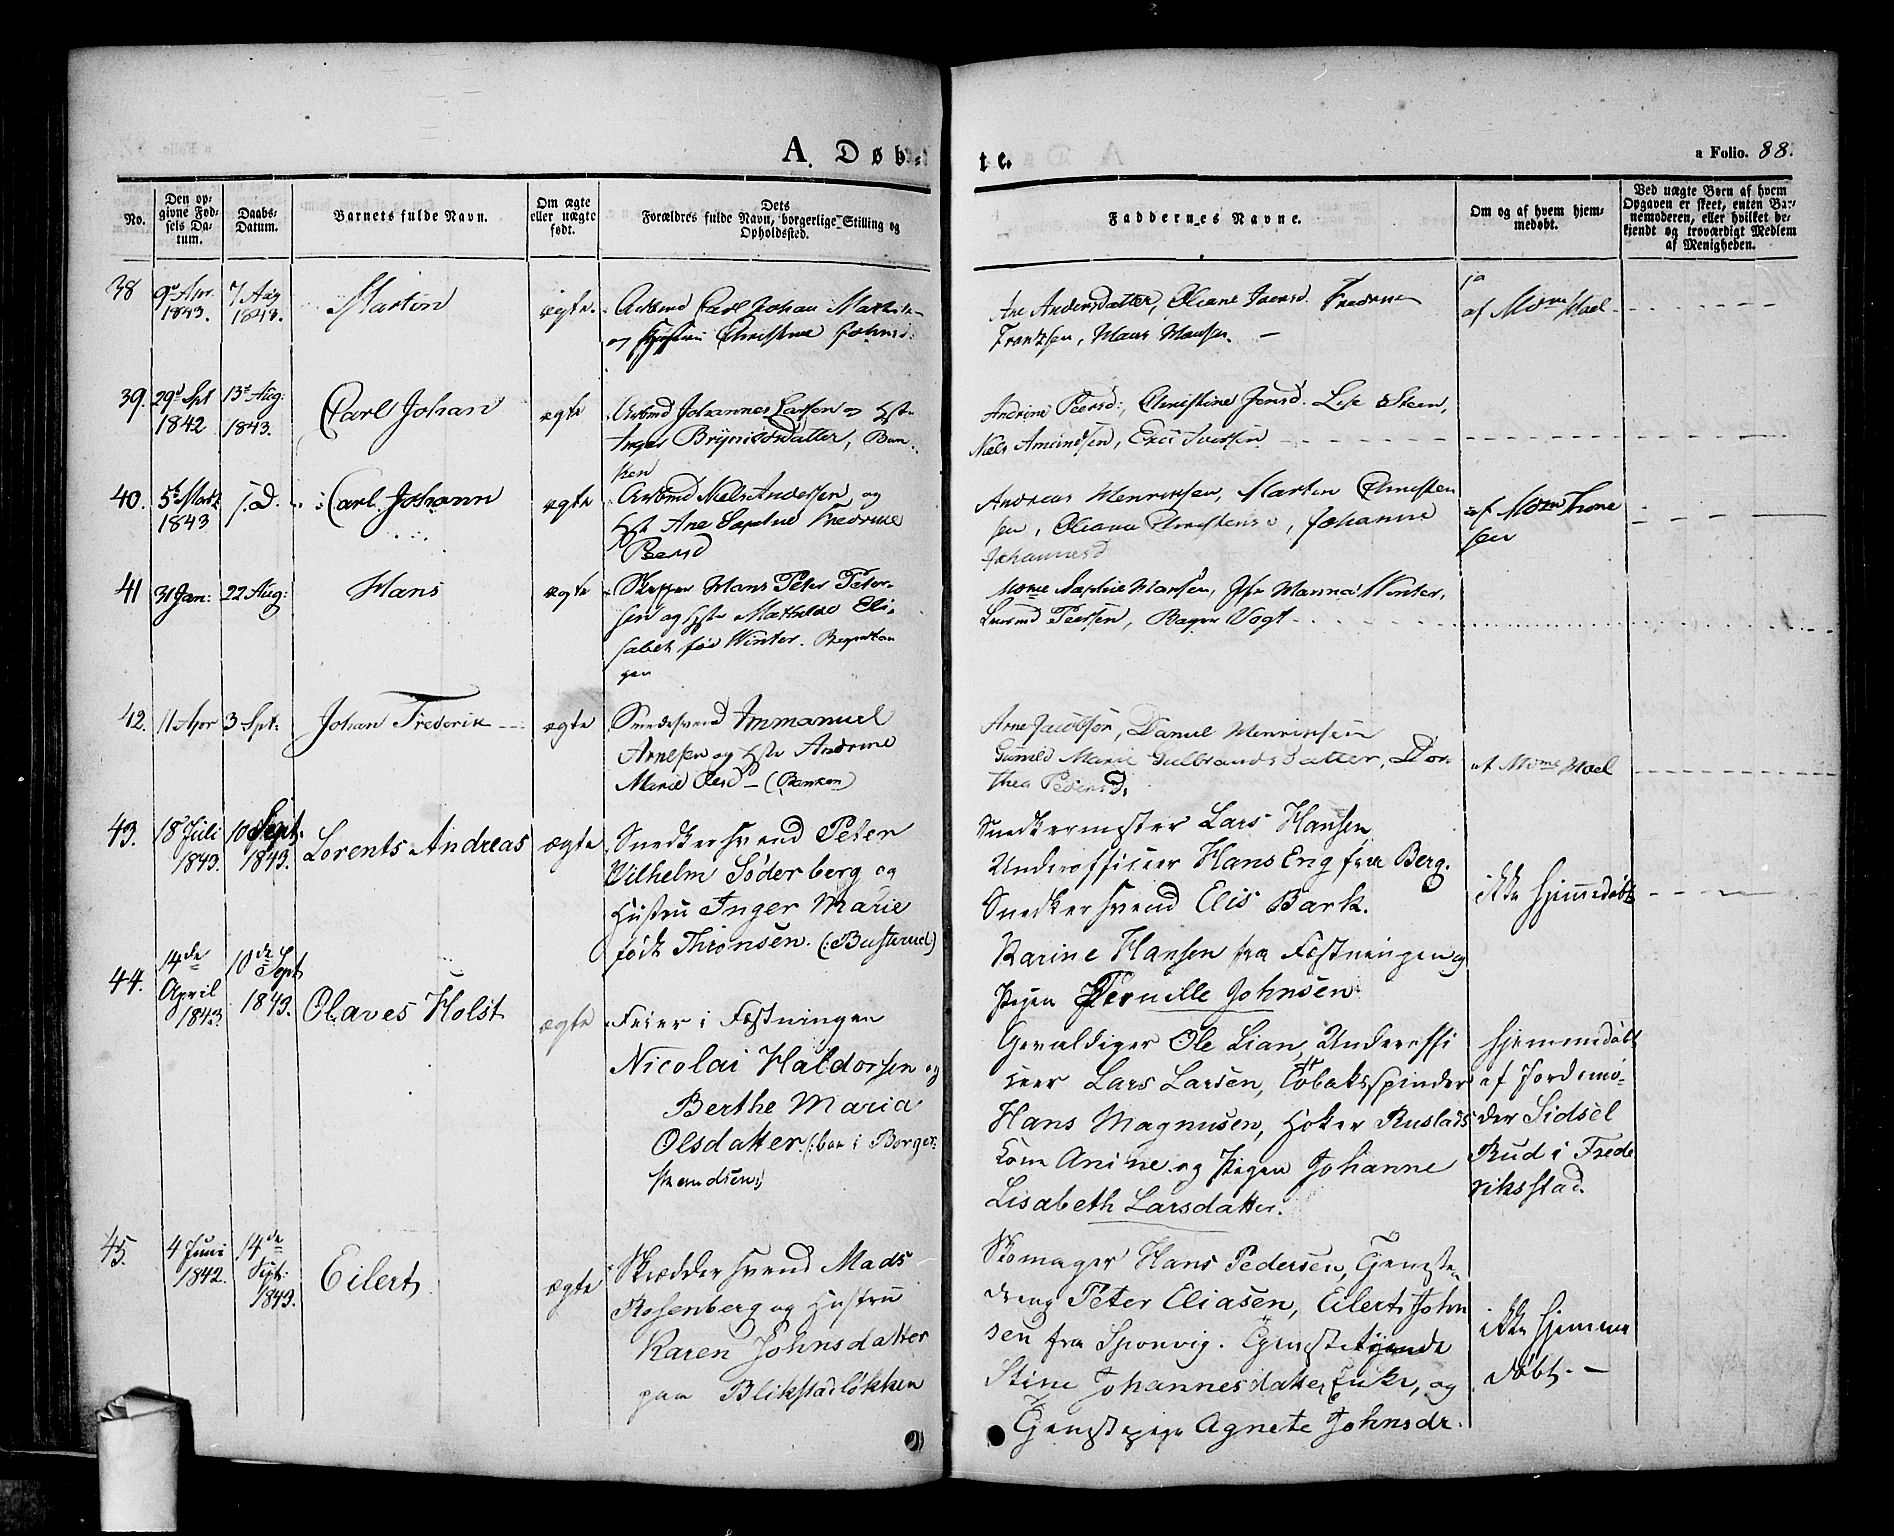 A. Døb-
te.
a Folio. 88.
No.
Den op-
givne Fød-
sels Da-
tum.
Daabs-
Datum.
Barnets fulde Navn.
Om ægte
eller uægte
født.
Dets
Forældres fulde Navn, borgerlige Stilling og
Opholdssted.
Faddernes Navne.
Om og af hvem hjem-
medøbt.
Ved uægte Børn af hvem
Opgaven er skeet, enten Bar-
nemoderen, eller hvilket be-
kjendt og troværdigt Medlem
af Menigheden.
38
9de Apr.
1843.
7 Aug
1843.
Martin
ægte.
Arbmd Carl Johan
og Hustru Christine Johnsd:
Ane Andersdatter, Oliane Iversd. Fredrine
Frantzen, Hans Hansen. —
ja
af Mome Hoel
39.
29d Spt
1842
13de Aug:
1843.
Carl Johan
ægte
Arbmd Johannes Larsen og Hst
Inger Brynildsdatter, Ban-
ken
Andrine Peersd:, Christine Jensd. Lise Steen,
Niels Amundsen, Eric Iversen
40.
5te Marts
1843
s.D.
Carl Johann
ægte
Arbmd Niels Andersen og
Hst Ane Sophie Fredrine
Peersd
Andreas Henriksen, Martin Christen
sen, Oliana Christense, Johanne
Johannesd
af Mome Throne
sen
41
31 Jan:
22 Aug:
Hans
ægte
Skipper Hans Peter Peter-
sen og Hst Mathilde Eli-
sabet fød Winter.
gen
Mome Sophie Hansen, Jfr Hanna Winter,
Peersen, Bager Vogt
42.
11 Apr
3 Spt:
Johan Frederik
ægte
Smedesvend Immanuel
Arnesen og Hst Andrine
Marie Olesd — (Banken)
Arne Jacobsen, Daniel Henriksen
Gunild Marie Gulbrandsdatter, Dor
thea Pedersd,
af Mome Hoel
43.
18 Juli
1843.
10 Sept:
1843.
Lorents Andreas
ægte
Snedkersvend Peter
Vilhelm Söderberg og
Hustru Inger Marie
født Thronsen. (:Busterud)
Snedkermester Lars Hansen,
Underofficeer Hans Eng fra Berg.
Snedkersvend Elis Bark.
Karine Hansen fra Fæstningen og
Pigen Pernille Johnsen
ikke hjemmedøbt
44.
14de
April
1843.
10de Sept
1843.
Olaves Holst
ægte
Feier i Fæstningen
Nicolai Haldorsen og
Berthe Maria
Olsdatter. (:boe i Borger-
skandsen:)
Gevaldiger Ole Lian, Underoffi
ceer Lars Larsen, Tobaksspinder
Hans Magnusen, Høker Rustads
Kone Anine og Pigen Johanne
Lisabeth Larsdatter.
hjemmedøbt
af Jordemo-
der Sidsel
Rud i Frede
riksstad.
45.
4 Juni
1842.
14de
Sept:
1843.
Eilert,
ægte
Skræddersvend Mads
Rosenberg og Hustru
Karen Johnsdatter
paa Blikstadløkken
Skomager Hans Pedersen, Tjeneste-
dreng Peter Eliasen, Eilert John
sen fra Sponvig. Tjenestetyende
Stine Johannesdatter, Enke, og
Tjenestepige Agnete Johnsdr.
ikke hjemme
døbt. —